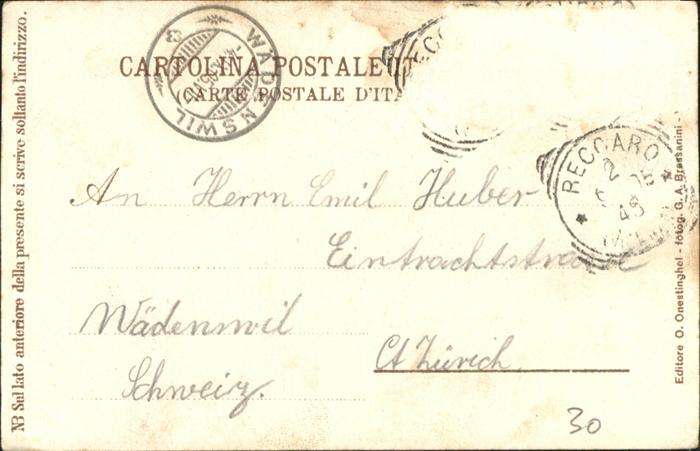 CARTOLINA POSTALE
(CARTE POSTALE D'ITA
WÄDENSWIL
RECOARO
An Herrn Emil Huber
Eintrachtstrasse
Wädenswil
Ct Zürich
Schweiz.
30
NB Sul lato anteriore della presente si scrive soltanto l'indirizzo.
Editore O. Onestinghel - fotog. G. A. Bressanini -